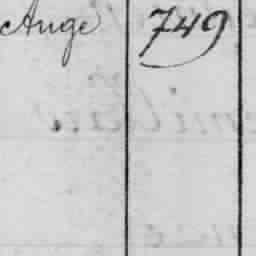 Ange 749